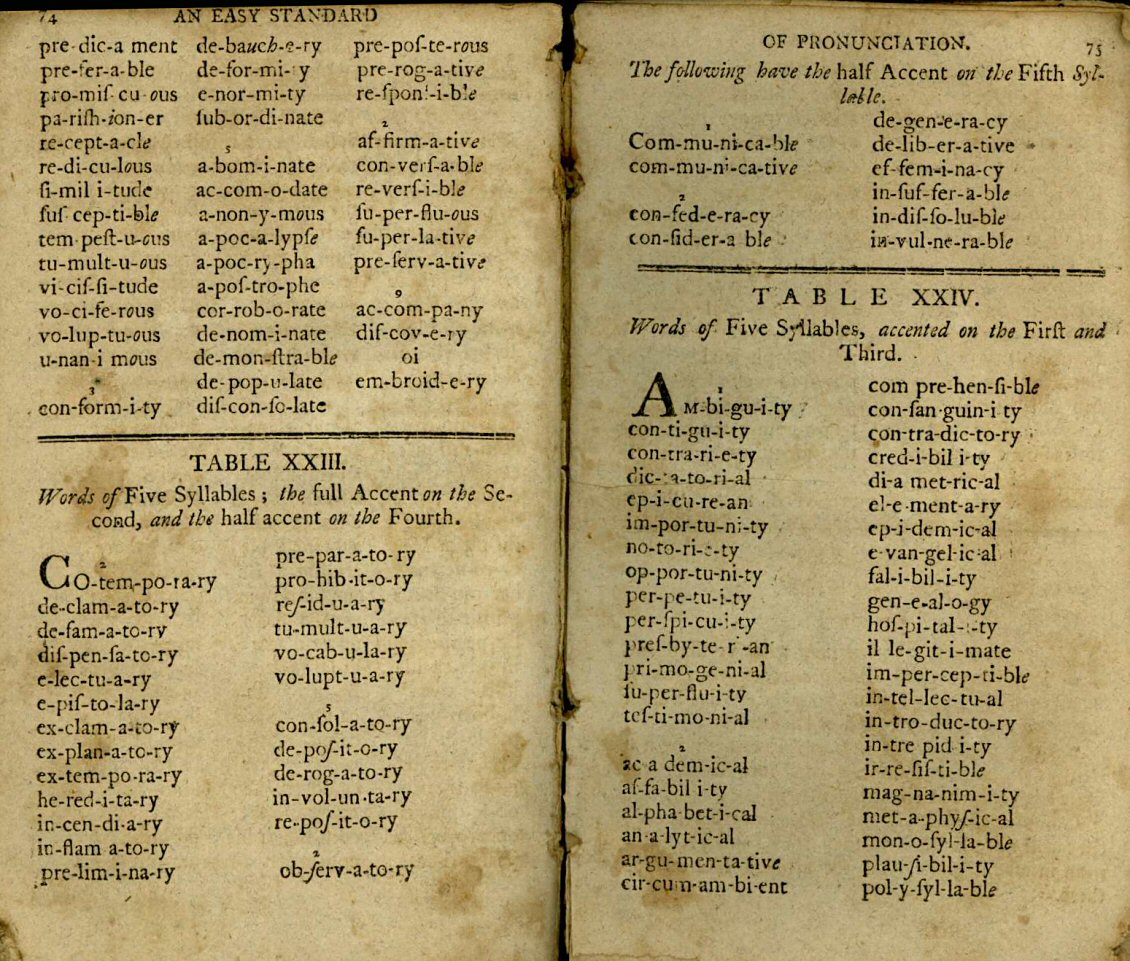 74
AN EASY STANDARD
pre-dic-a ment
pre-fer-a-ble
pro-miſ-cu-ous
pa-riſh-ion-er
re-cept-a-cle
re-di-cu-lous
ſi-mil i-tude
ſuſ-cep-ti-ble
tem-peſt-u-ous
tu-mult-u-ous
vi-ciſ-ſi-tude
vo-ci-fe-rous
vo-lup-tu-ous
u-nan-i mous
3
con-form-i-ty
de-bauch-e-ry
de-for-mi- y
e-nor-mi-ty
ſub-or-di-nate
5
a-bom-i-nate
ac-com-o-date
a-non-y-mous
a-poc-a-lypſe
a-poc-ry-pha
a-poſ-tro-phe
cor-rob-o-rate
de-nom-i-nate
de-mon-ſtra-ble
de-pop-u-late
diſ-con-ſo-late
pre-poſ-te-rous
pre-rog-a-tive
re-ſponſ-i-ble
2
af-firm-a-tive
con-verſ-a-ble
re-verſ-i-ble
ſu-per-flu-ous
ſu-per-la-tive
pre-ſerv-a-tive
9
ac-com-pa-ny
diſ-cov-e-ry
oi
em-broid-e-ry
TABLE XXIII.
Words of Five Syllables ; the full Accent on the Se-
cond, and the half accent on the Fourth.
2
CO-tem-po-ra-ry
de-clam-a-to-ry
de-fam-a-to-ry
diſ-pen-ſa-to-ry
e-lec-tu-a-ry
e-piſ-to-la-ry
ex-clam-a-to-ry
ex-plan-a-to-ry
ex-tem-po-ra-ry
he-red-i-ta-ry
in-cen-di-a-ry
in-flam a-to-ry
pre-lim-i-na-ry
pre-par-a-to-ry
pro-hib-it-o-ry
reſ-id-u-a-ry
tu-mult-u-a-ry
vo-cab-u-la-ry
vo-lupt-u-a-ry
5
con-ſol-a-to-ry
de-poſ-it-o-ry
de-rog-a-to-ry
in-vol-un-ta-ry
re-poſ-it-o-ry
2
ob-ſerv-a-to-ry
OF PRONUNCIATION.
75
The following have the half Accent on the Fifth Syl-
lable.
1
Com-mu-ni-ca-ble
com-mu-ni-ca-tive
2
con-fed-e-ra-cy
con-ſid-er-a ble
de-gen-e-ra-cy
de-lib-er-a-tive
ef-fem-i-na-cy
in-ſuf-fer-a-ble
in-diſ-ſo-lu-ble
in-vul-ne-ra-ble
TABLE XXIV.
Words of Five Syllables, accented on the Firſt and
Third.
1
AM-bi-gu-i-ty
con-ti-gu-i-ty
con-tra-ri-e-ty
dic-ta-to-ri-al
ep-i-cu-re-an
im-por-tu-ni-ty
no-to-ri-e-ty
op-por-tu-ni-ty
per-pe-tu-i-ty
per-ſpi-cu-i-ty
preſ-by-te-ri-an
pri-mo-ge-ni-al
ſu-per-flu-i-ty
teſ-ti-mo-ni-al
2
ac a dem-ic-al
af-fa-bil i-ty
al-pha-bet-i-cal
an-a-lyt-ic-al
ar-gu-men-ta-tive
cir-cum-am-bi-ent
com pre-hen-ſi-ble
con-ſan-guin-i ty
con-tra-dic-to-ry
cred-i-bil i-ty
di-a met-ric-al
el-e-ment-a-ry
ep-i-dem-ic-al
e-van-gel-ic-al
fal-i-bil-i-ty
gen-e-al-o-gy
hoſ-pi-tal-i-ty
il le-git-i-mate
im-per-cep-ti-ble
in-tel-lec-tu-al
in-tro-duc-to-ry
in-tre pid i-ty
ir-re-ſiſ-ti-ble
mag-na-nim-i-ty
met-a-phyſ-ic-al
mon-o-ſyl-la-ble
plau-ſi-bil-i-ty
pol-y-ſyl-la-ble